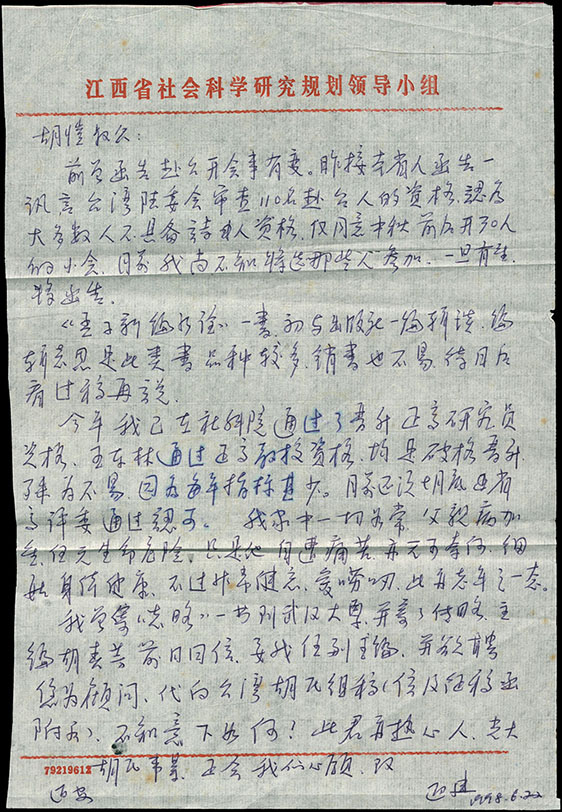 江西省社会科学研究规划领导小组
胡
前曾函告赴台开会事有变。昨接本省人函告一
讯言台湾陆委会审查110名赴台人的资格,認为
大多数人不具备請人资格,仅同意中秋前后开30人
的小会,目前我尚不知特选那些人参加,一旦有
将函告。
《孟子新编》一書,初与出版社一编辑谈,编
辑意思是此类書品种较多,销書也不易,待日后
看过稿再说。
今年我已在社科院通过了晋升正高研究员
资格,王东林通过正高教授资格,均是破格晋升
殊为不易,因为每年指标甚少。目前还须胡底由省
高评委通过認可。我家中一切如常,父親病加
重,但无生命危险,只是他自遭痛苦,亦无可奈何,
身体健康,不过非常健忘,爱唠叨,此亦老年之一态。
我曾寄《志略》一书到武汉大学,并寄了传略,主
编胡前日回信,委我任副主编,并欲聘
您为顾问,代向台湾胡氏组稿(信及征稿函
附),不知意下如何?此君亦热心人,
胡氏事業,正合我们心願,
79219612
1998.6.22